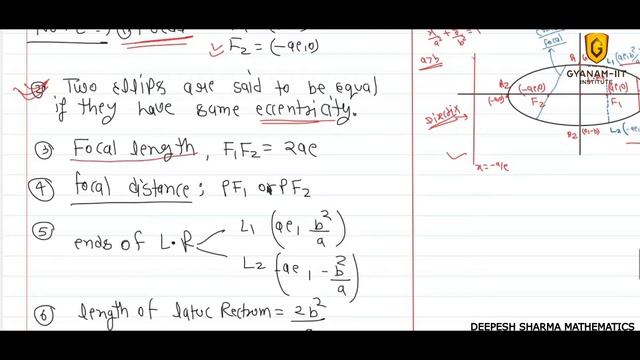 F₂ = (-ae, 0)
② Two ellips are said to be equal
if they have same eccentricity.
③ Focal length, F₁F₂ = 2ae
④ focal distance; PF₁ or PF₂
⑤ ends of L.R
L₁ (ae, b²/a)
L₂ (ae, -b²/a)
⑥ length of latuc Rectrum = 2b²
a>b
Directrix
x = -a/e
(-ae, 0)
F₂
F₁
B₂
GYANAM-IIT
INSTITUTE
DEEPESH SHARMA MATHEMATICS